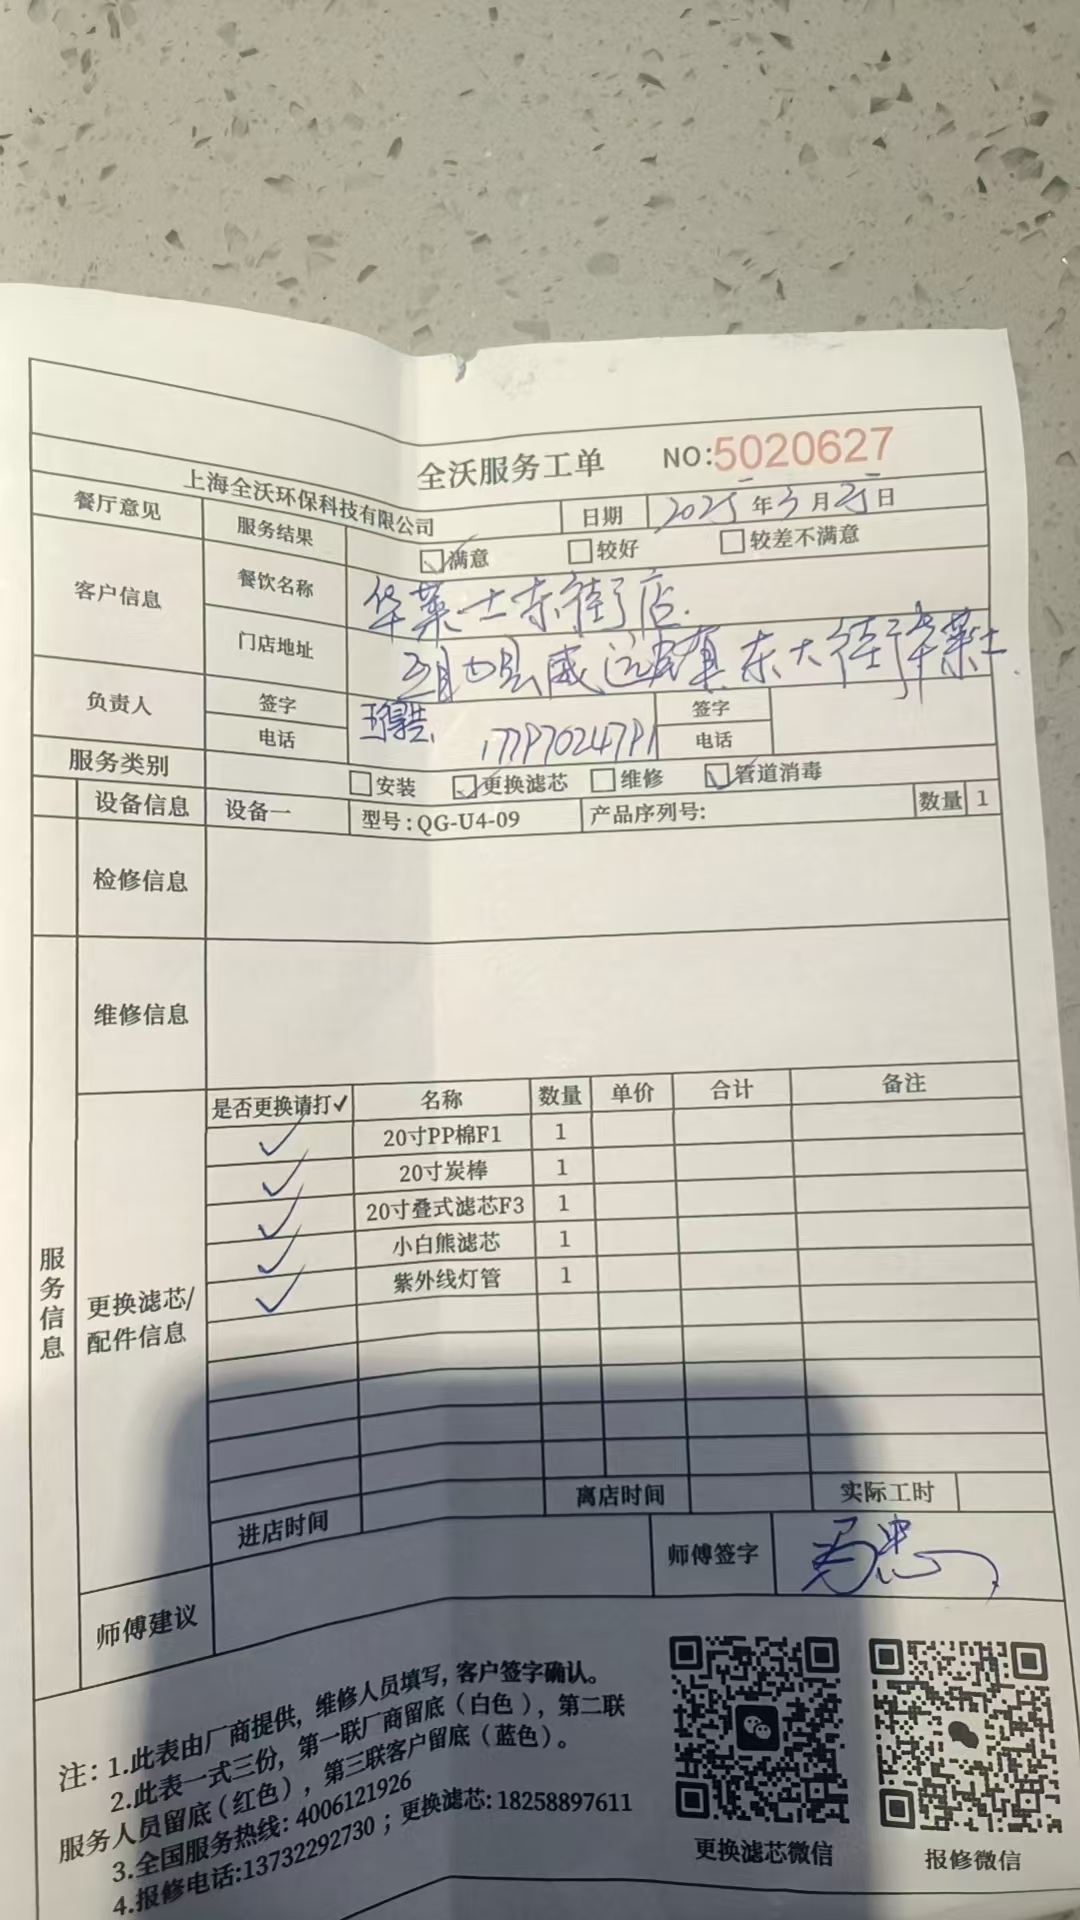 全沃服务工单 NO:5020627
上海全沃环保科技有限公司 日期 2025年3月25日
餐厅意见 服务结果 满意 较好 较差不满意
客户信息 餐饮名称 华莱士东街店.
门店地址 互助县威远镇东大街华莱士.
负责人 签字 签字
电话 17797024791 电话
服务类别 安装 更换滤芯 维修 管道消毒
设备信息 设备一 型号:QG-U4-09 产品序列号: 数量 1
检修信息
维修信息
服务信息
更换滤芯/
配件信息
是否更换请打✓ 名称 数量 单价 合计 备注
✓ 20寸PP棉F1 1
✓ 20寸炭棒 1
✓ 20寸叠式滤芯F3 1
✓ 小白熊滤芯 1
✓ 紫外线灯管 1
进店时间 离店时间 实际工时
师傅建议 师傅签字
注: 1.此表由厂商提供, 维修人员填写, 客户签字确认。
2.此表一式三份, 第一联厂商留底(白色), 第二联
服务人员留底(红色), 第三联客户留底(蓝色)。
3.全国服务热线: 4006121926
4.报修电话:13732292730 ; 更换滤芯: 18258897611
更换滤芯微信 报修微信